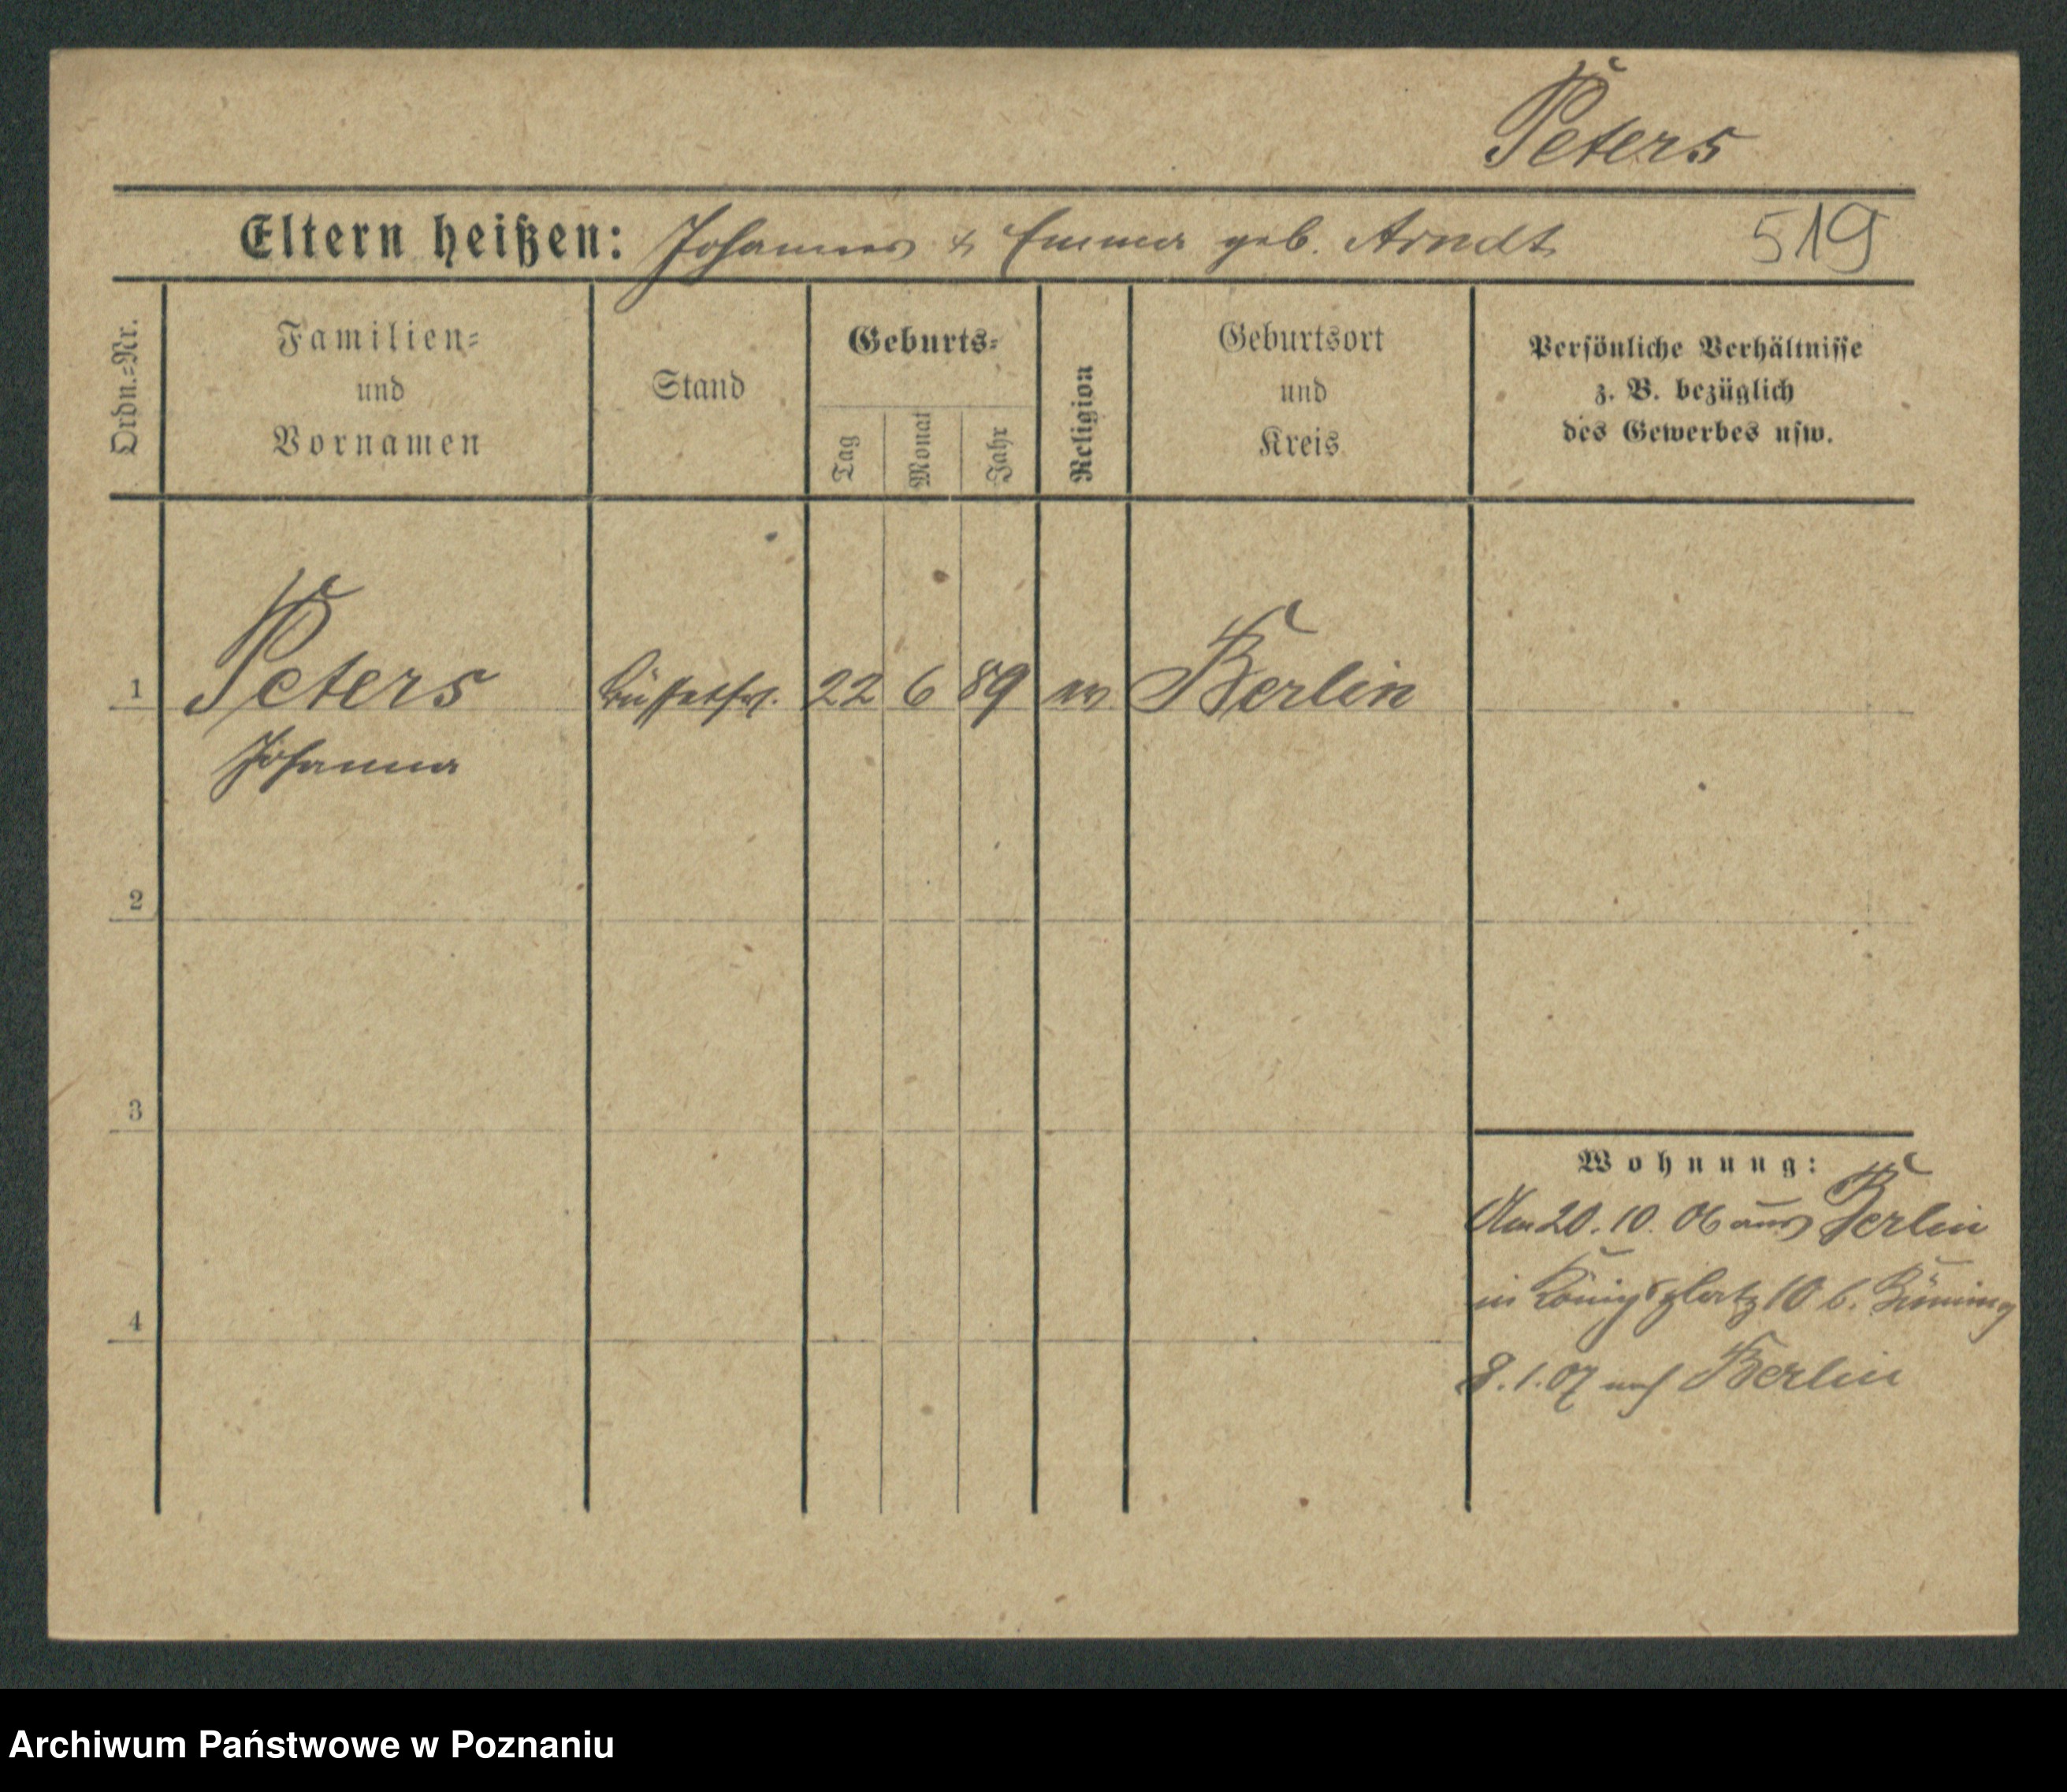 Peters
Eltern heißen: Johannes & Emma geb. Arndt 519
Ordn.-Nr.
Familien-
und
Vornamen
Stand
Geburts-
Tag
Monat
Jahr
Religion
Geburtsort
und
Kreis
Persönliche Verhältnisse
z. B. bezüglich
des Gewerbes usw.
1 Peters Büffetfrl. 22 6 89 ev Berlin
Johanna
2
3
4
Wohnung:
Am 20. 10. 06 aus Berlin
in Königsplatz 10 b.
8.1.07 nach Berlin
Archiwum Państwowe w Poznaniu